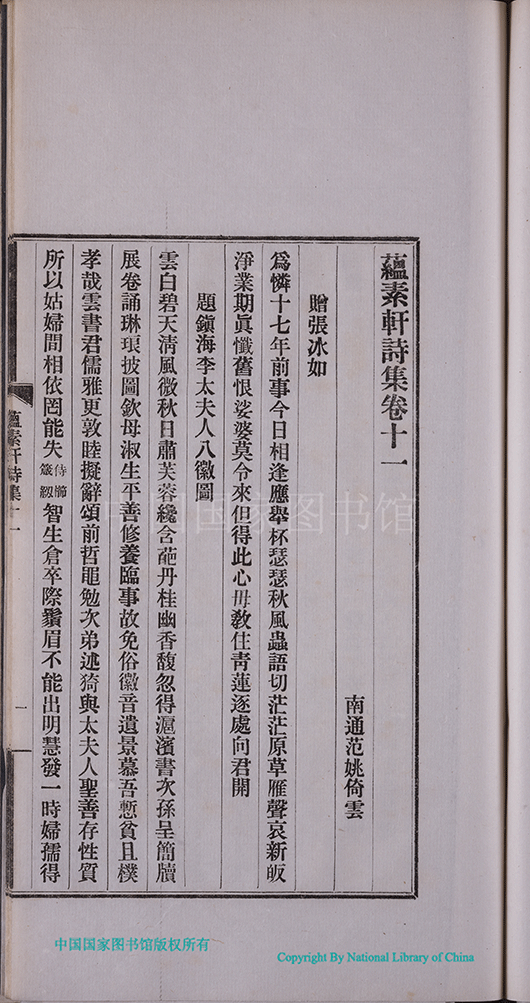 蘊素軒詩集卷十一
南通范姚倚雲
贈張冰如
爲憐十七年前事今日相逢應舉杯瑟瑟秋風蟲語切茫茫原草雁聲哀新皈
淨業期眞懺舊恨娑婆莫令來但得此心毋敎住靑蓮逐處向君開
題鎭海李太夫人八徽圖
雲白碧天淸風微秋日肅芙蓉纔含葩丹桂幽香馥忽得滬濱書次孫呈簡牘
展卷誦琳琅披圖欽母淑生平善修養臨事故免俗徽音遺景慕吾慙貧且樸
孝哉雲書君儒雅更敦睦擬辭頌前哲黽勉次弟述猗與太夫人聖善存性質
所以姑婦間相依罔能失侍櫛箴紉智生倉卒際鬚眉不能出明慧發一時婦孺得
蘊素軒詩集十一
一
中国国家图书馆
中国国家图书馆版权所有
Copyright By National Library of China